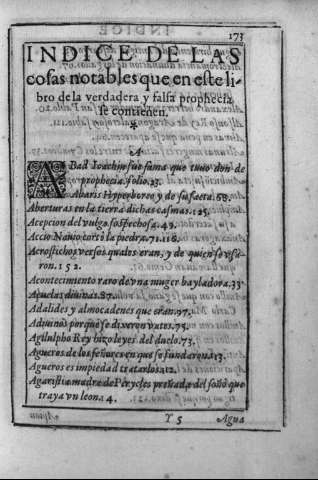 173
INDICE DE LAS
cosas notables que en este li-
bro de la verdadera y falsa prophecia
se contienen.
A
ABad Ioachin fue fama que tuuo don de
prophecia. folio. 23.
Abaris Hyperboreo y de su saeta. 68.
Aberturas en la tierra dichas casmas. 125.
Acepcion del vulgo sospechosa. 49.
Accio Nauio cortò la piedra. 71. 116.
Acrostichos versos quales eran, y de quien se vsa-
ron. 152.
Acontecimiento raro de vna muger bayladora. 33
Açuelas diuinas. 87.
Adalides y almocadenes que eran. 97.
Adiuinos porque se dixeron vates. 75.
Agilulpho Rey hizo leyes del duelo. 73.
Agueros de los señores en que se fundaron. 113.
Agueros es impiedad tratarlos. 112.
Agaristia madre de Perycles preñada del soñò que
traya vn leona 4.
Y 5 Agua